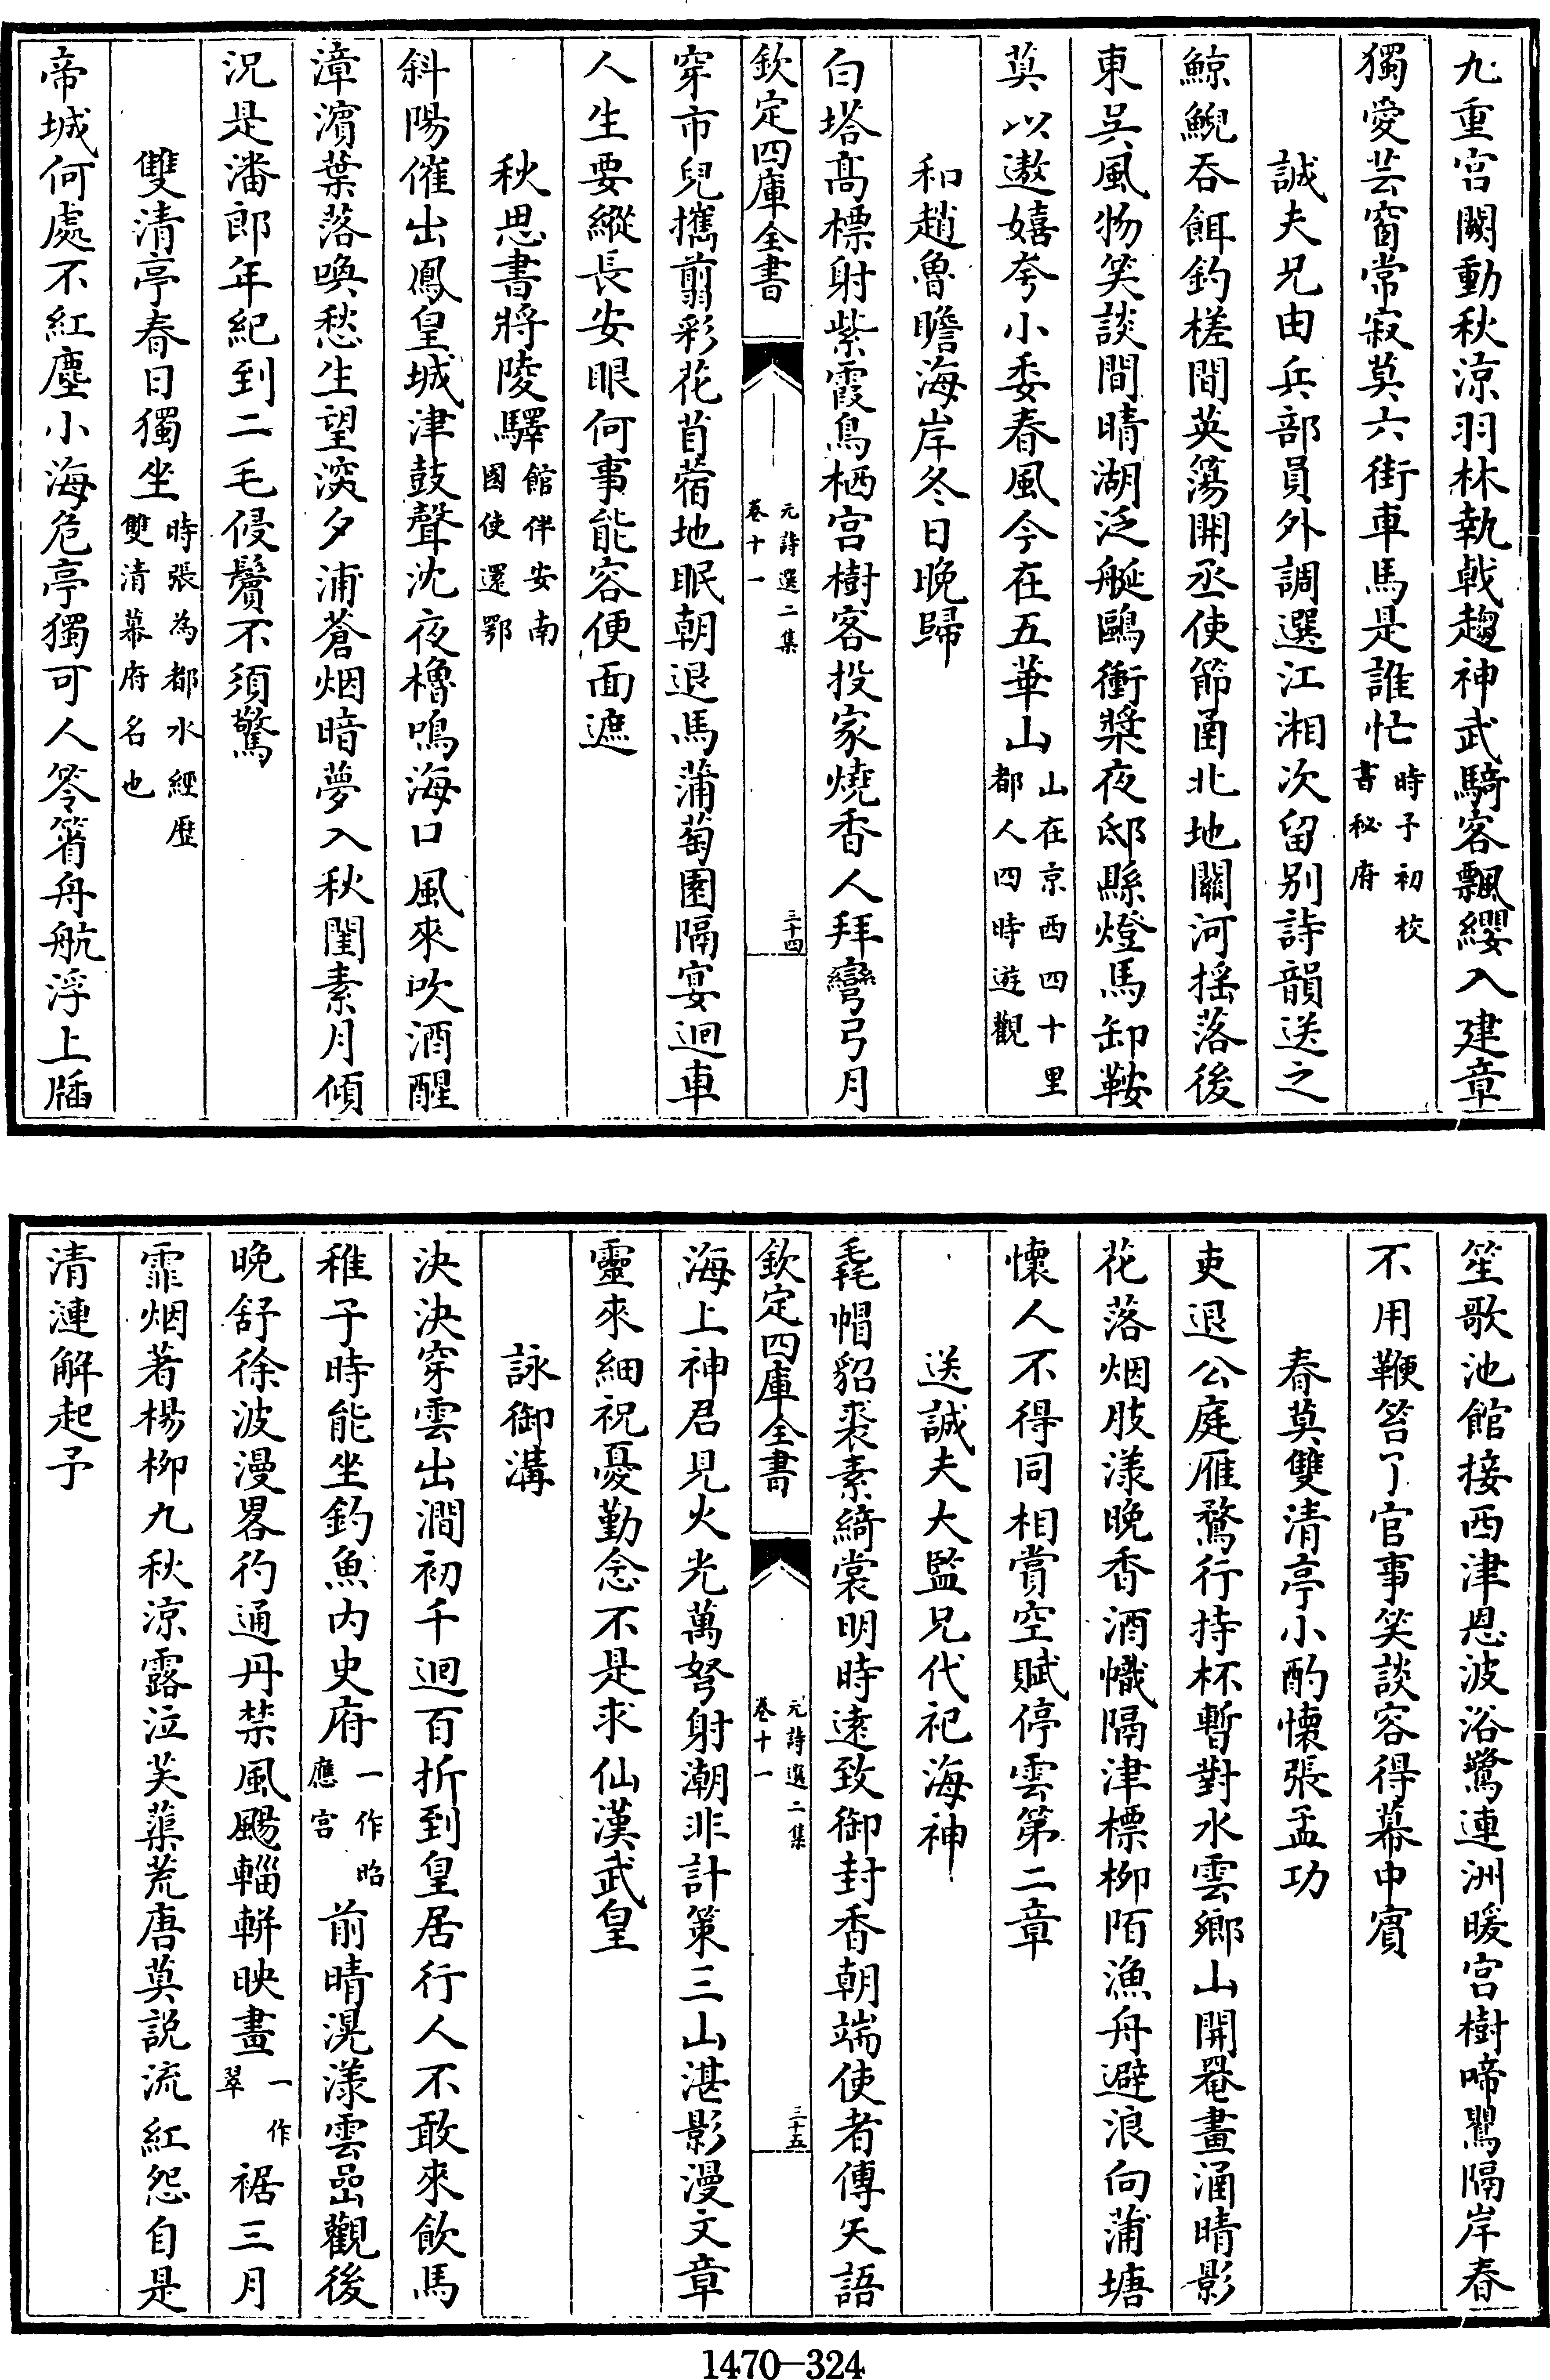 九重宮闕動秋涼羽林執戟趨神武騎客飄纓入建章
獨愛芸窗常寂莫六街車馬是誰忙時予初校書秘府
誠夫兄由兵部員外調選江湘次留別詩韻送之
鯨鯢吞餌釣槎間英蕩開丞使節甬北地關河揺落後
東吳風物笑談間晴湖泛艇鷗衝槳夜邸縣燈馬卸鞍
莫以遨嬉夸小委春風今在五華山山在京西四十里都人四時遊觀
和趙魯瞻海岸冬日晚歸
白塔髙標射紫霞鳥栖宮樹客投家燒香人拜彎弓月
欽定四庫全書
元詩選二集
卷十一
三十四
穿市兒攜翦彩花苜蓿地眠朝退馬蒲萄園隔宴迴車
人生要縱長安眼何事能容便面遮
秋思書將陵驛館伴安南國使還鄂
斜陽催出鳳皇城津鼓聲沈夜櫓鳴海口風來吹酒醒
漳濱葉落喚愁生望深夕浦蒼烟暗夢入秋閨素月傾
況是潘郎年紀到二毛侵鬢不須驚
雙清亭春日獨坐時張為都水經歷雙清幕府名也
帝城何處不紅塵小海危亭獨可人笭箵舟航浮上牐
笙歌池館接西津恩波浴鷺連洲暖宮樹啼鸎隔岸春
不用鞭笞了官事笑談容得幕中賓
春莫雙清亭小酌懷張孟功
吏退公庭雁鶩行持杯暫對水雲鄉山開罨畫涵晴影
花落烟肢漾晚香酒幟隔津標柳陌漁舟避浪向蒲塘
懷人不得同相賞空賦停雲第二章
送誠夫大監兄代祀海神
毳帽貂裘素綺裳明時遠致御封香朝端使者傳天語
欽定四庫全書
元詩選二集
卷十一
三十五
海上神君見火光萬弩射潮非計策三山湛影漫文章
靈來細祝憂勤念不是求仙漢武皇
詠御溝
決決穿雲出澗初千迴百折到皇居行人不敢來飲馬
稚子時能坐釣魚内史府一作昭應宮前晴滉漾雲嵒觀後
晚舒徐波漫畧彴通丹禁風颺輜軿映畫一作翠裾三月
霏烟著楊柳九秋涼露泣芙蕖荒唐莫説流紅怨自是
清漣解起予
1470—324